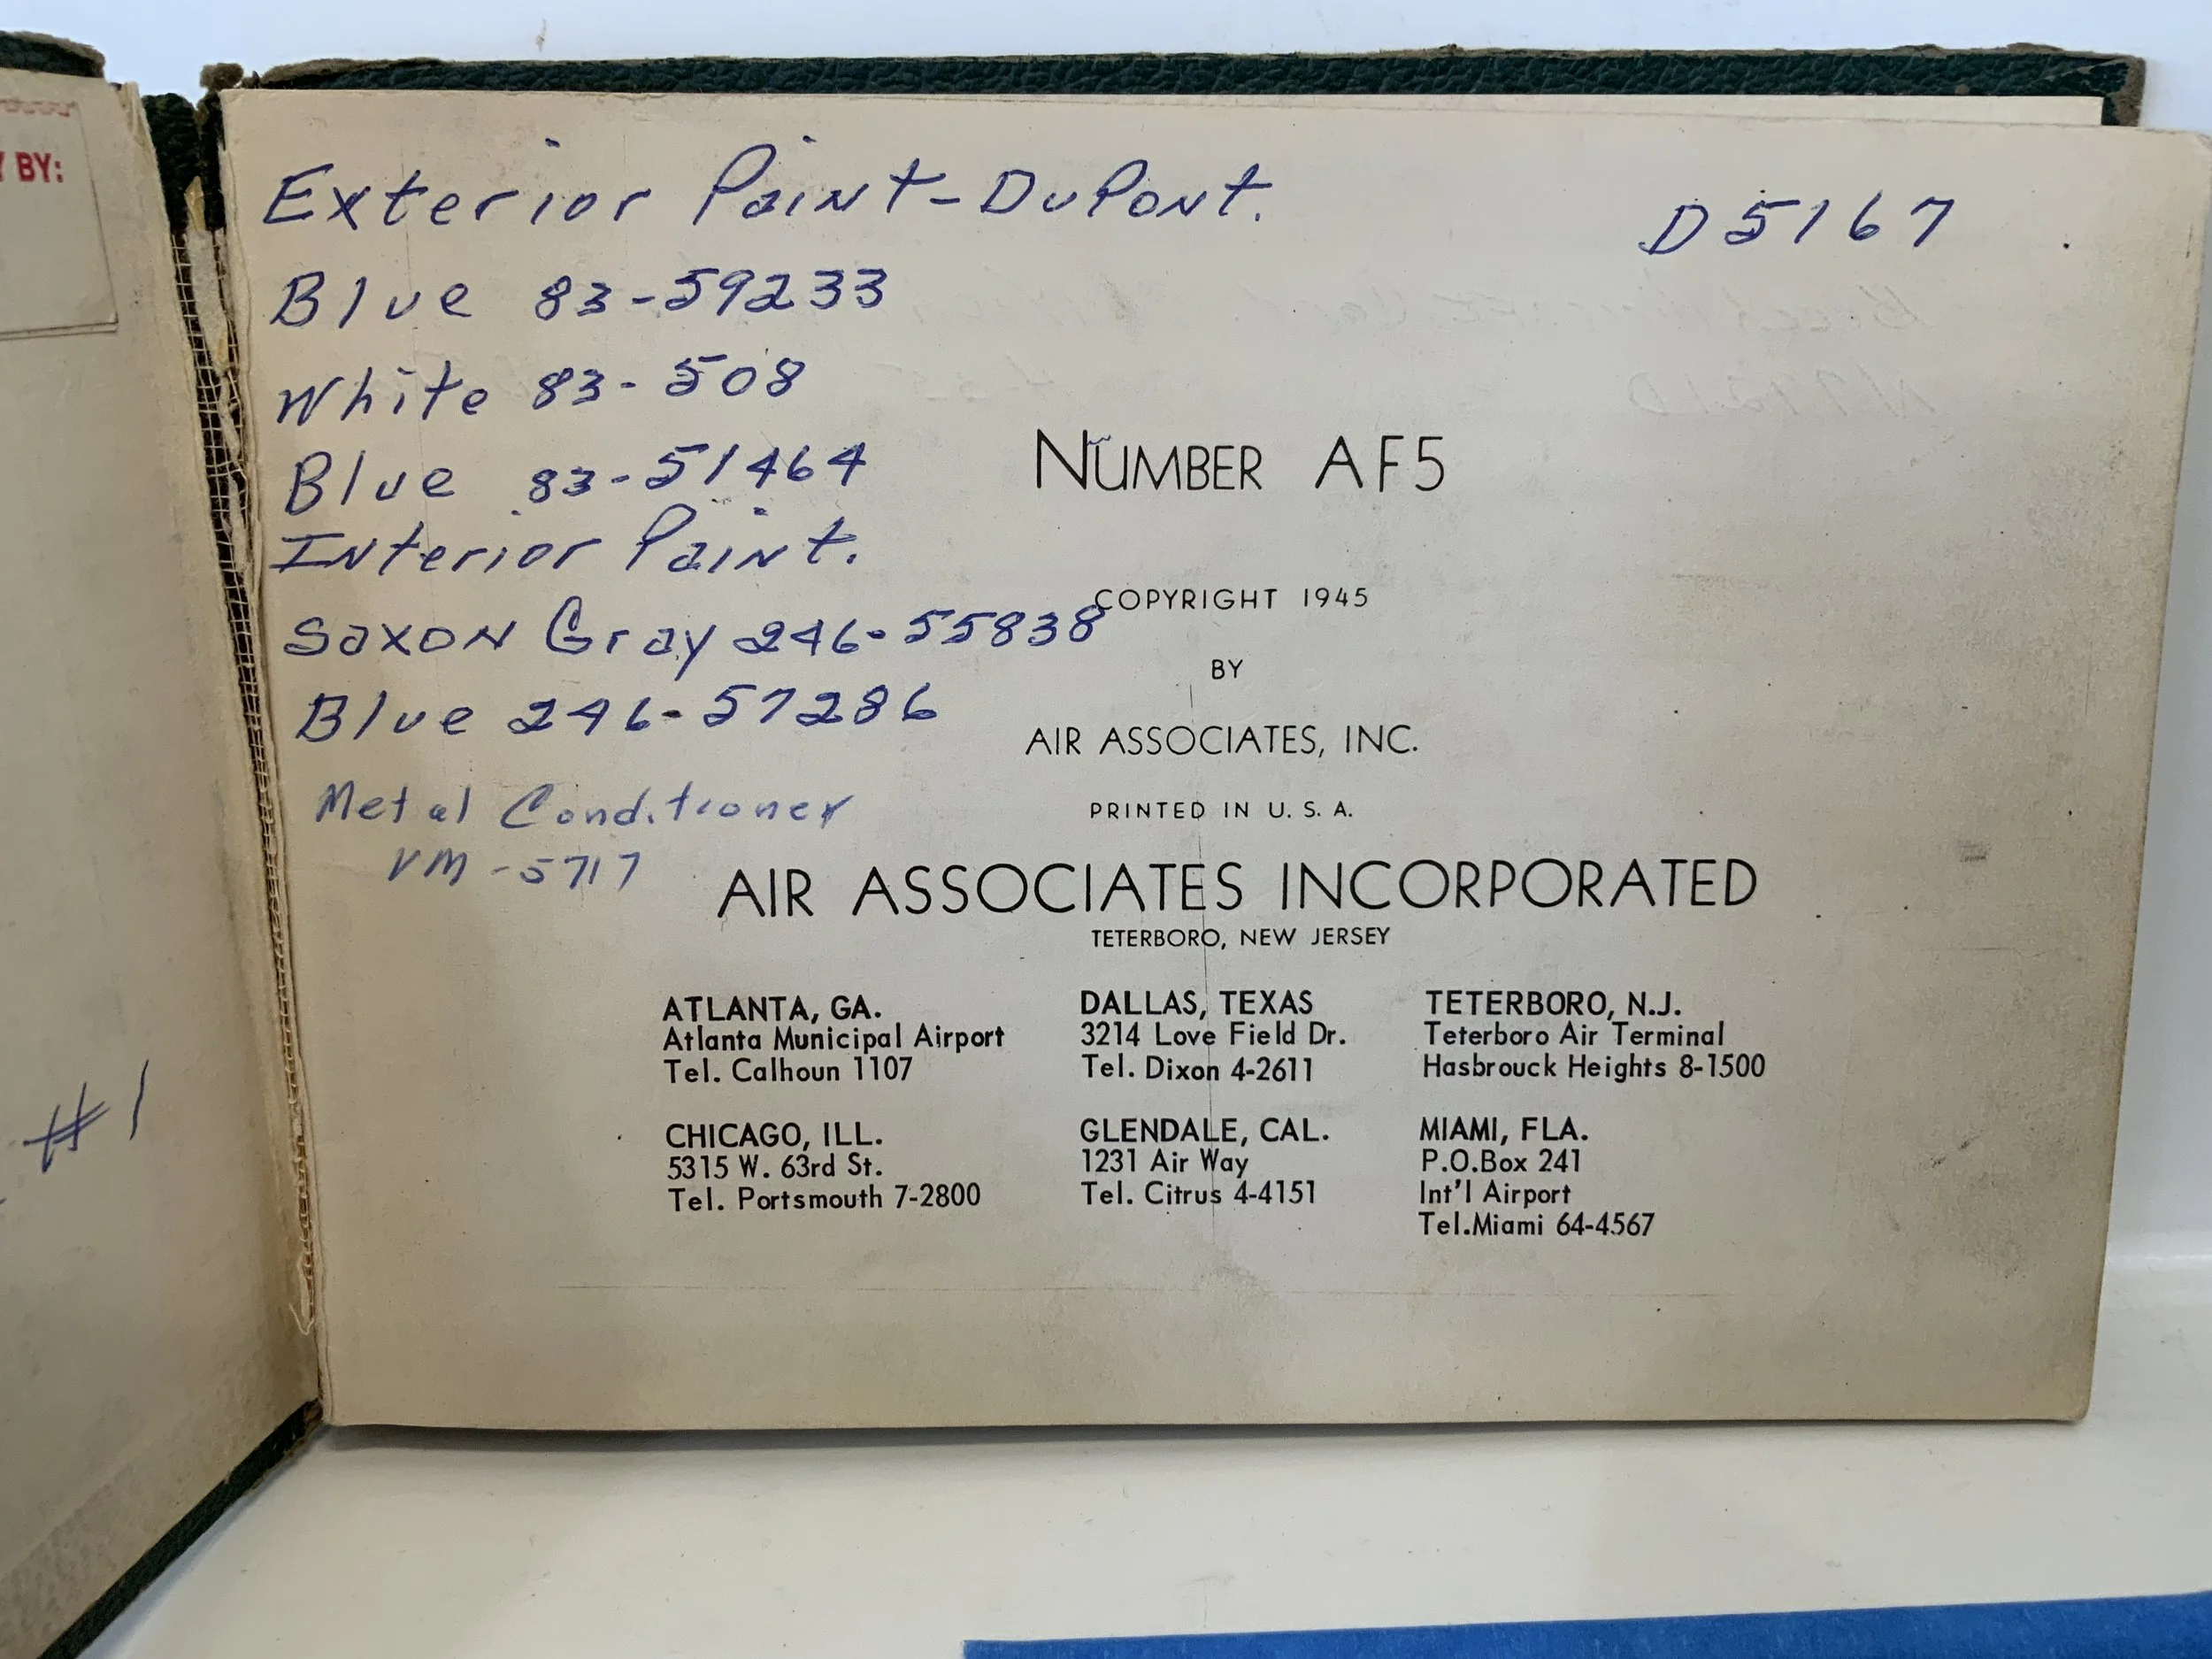 BY:
#1
Exterior Paint-DuPont.
D5167
Blue 83-59233
White 83-508
Blue 83-51464
Interior Paint.
Saxon Gray 246-55838
Blue 246-57286
Metal Conditioner
VM-5717
NUMBER AF5
COPYRIGHT 1945
BY
AIR ASSOCIATES, INC.
PRINTED IN U. S. A.
AIR ASSOCIATES INCORPORATED
TETERBORO, NEW JERSEY
ATLANTA, GA.
Atlanta Municipal Airport
Tel. Calhoun 1107
DALLAS, TEXAS
3214 Love Field Dr.
Tel. Dixon 4-2611
TETERBORO, N.J.
Teterboro Air Terminal
Hasbrouck Heights 8-1500
CHICAGO, ILL.
5315 W. 63rd St.
Tel. Portsmouth 7-2800
GLENDALE, CAL.
1231 Air Way
Tel. Citrus 4-4151
MIAMI, FLA.
P.O.Box 241
Int'l Airport
Tel.Miami 64-4567